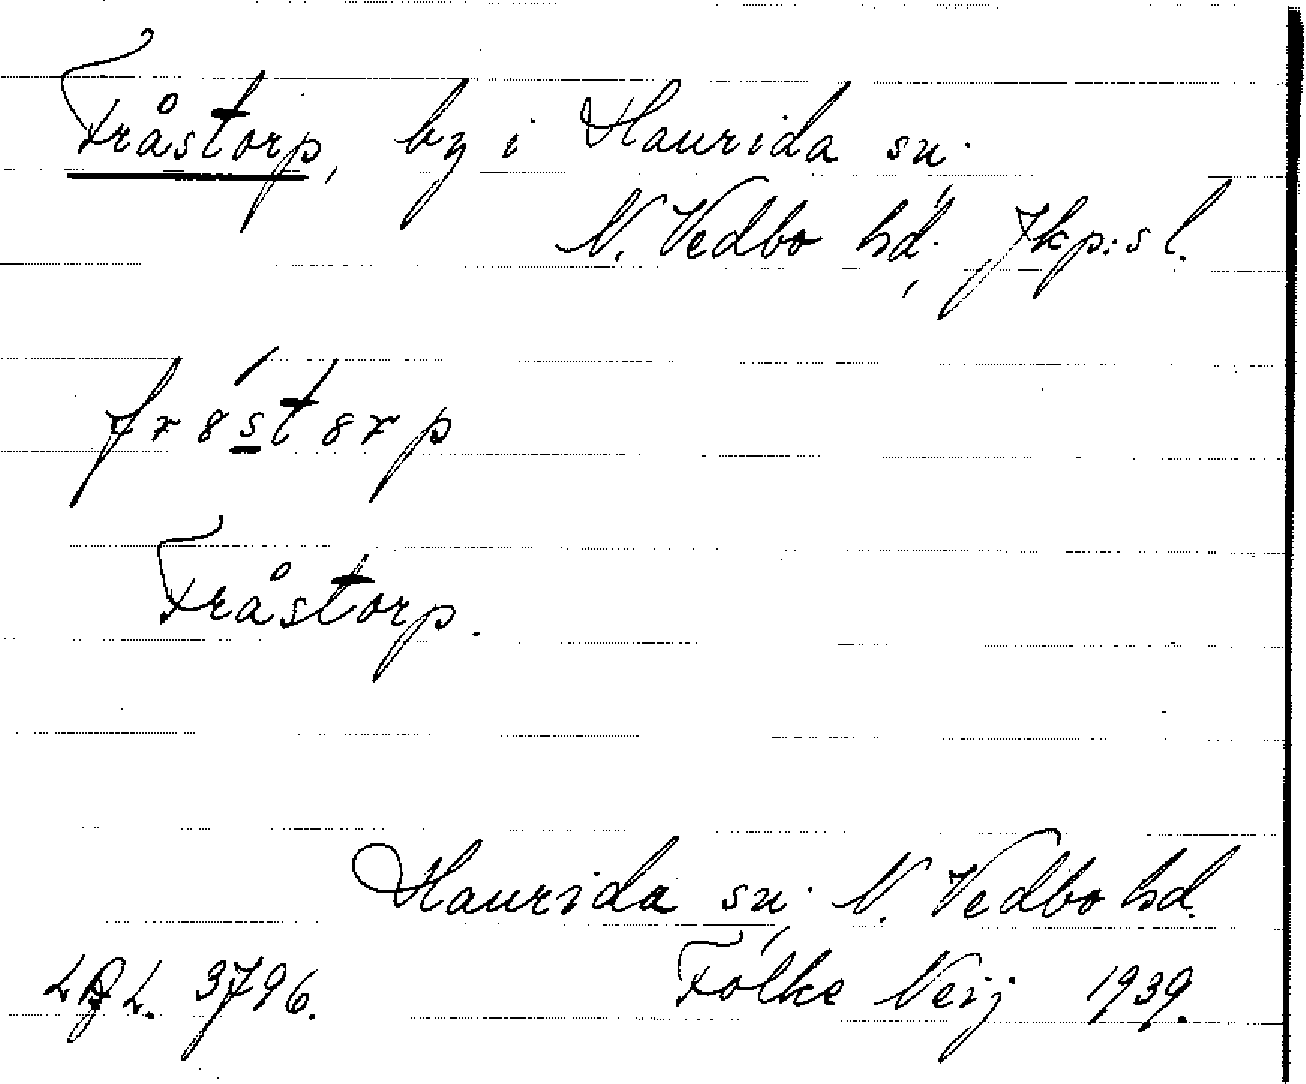 Fråstorp, by i Haurida sn.
N. Vedbo hd. Jkp:s l.
fr8st8rp
Fråstorp.
Haurida sn. N. Vedbo hd.
3796. Folke Neij 1939.